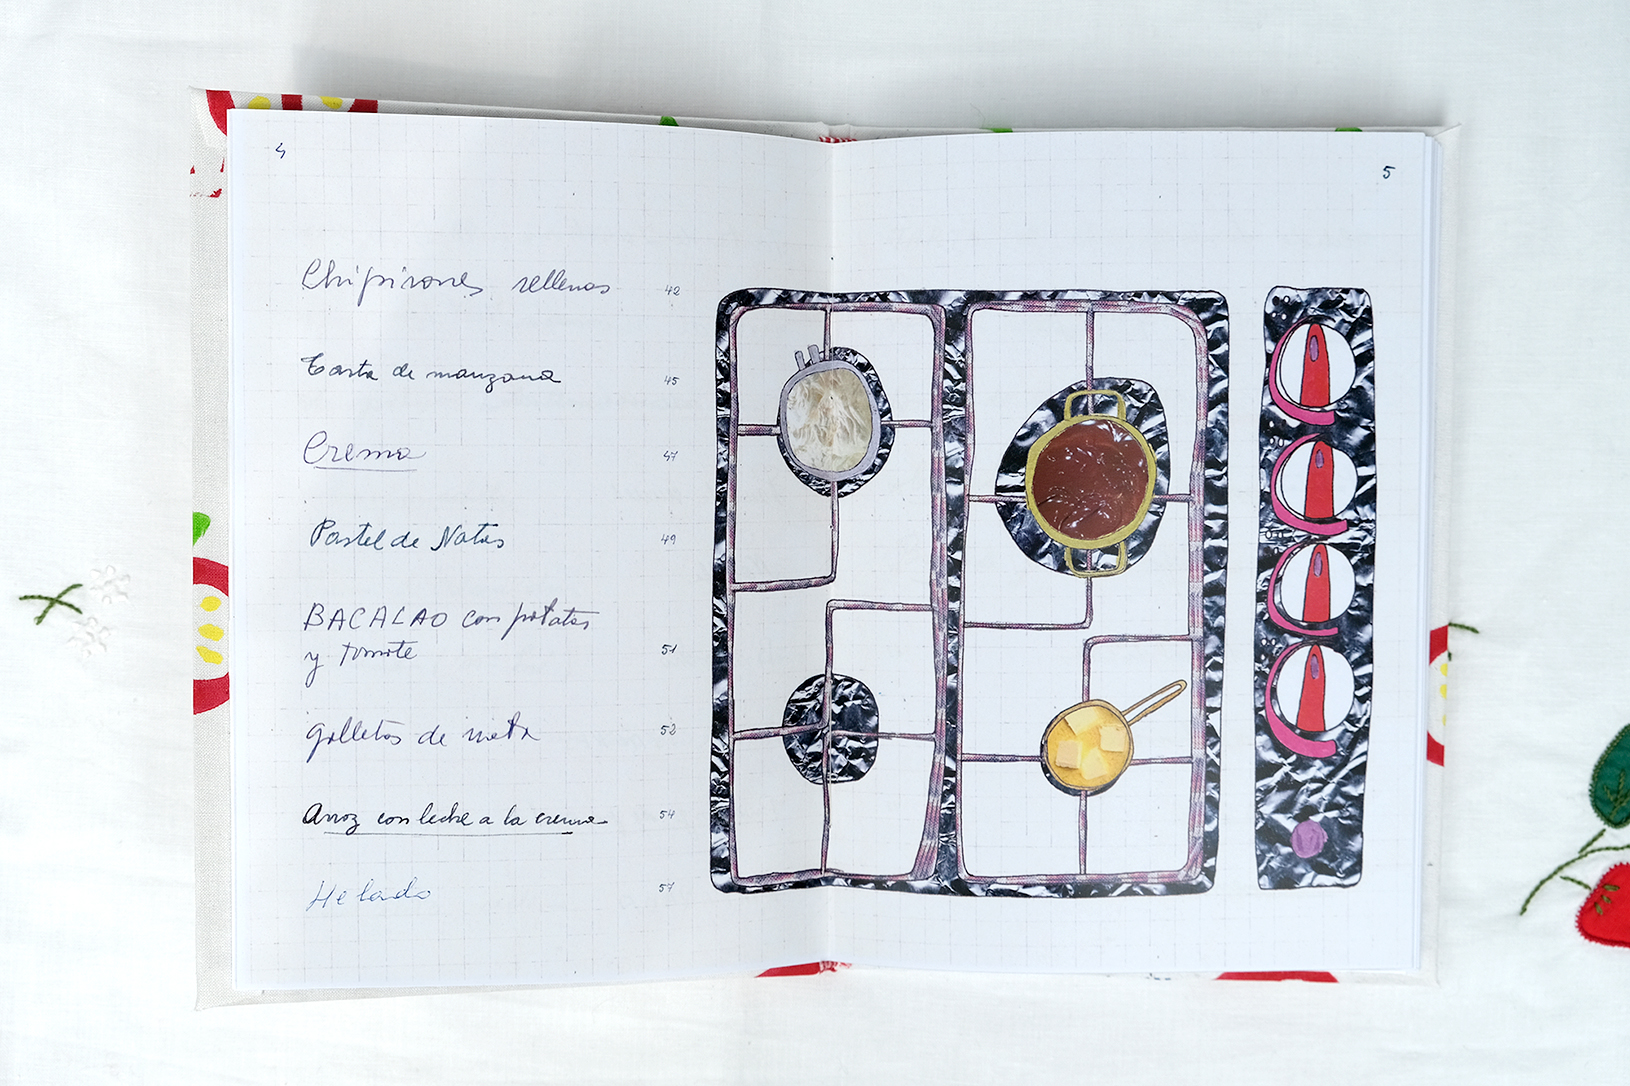 4
5
Chipirones rellenos 42
Tarta de manzana 45
Crema 47
Pastel de Natas 49
BACALAO con patatas
y tomate 51
galletas de nata 52
Arroz con leche a la crema 54
Helado 57